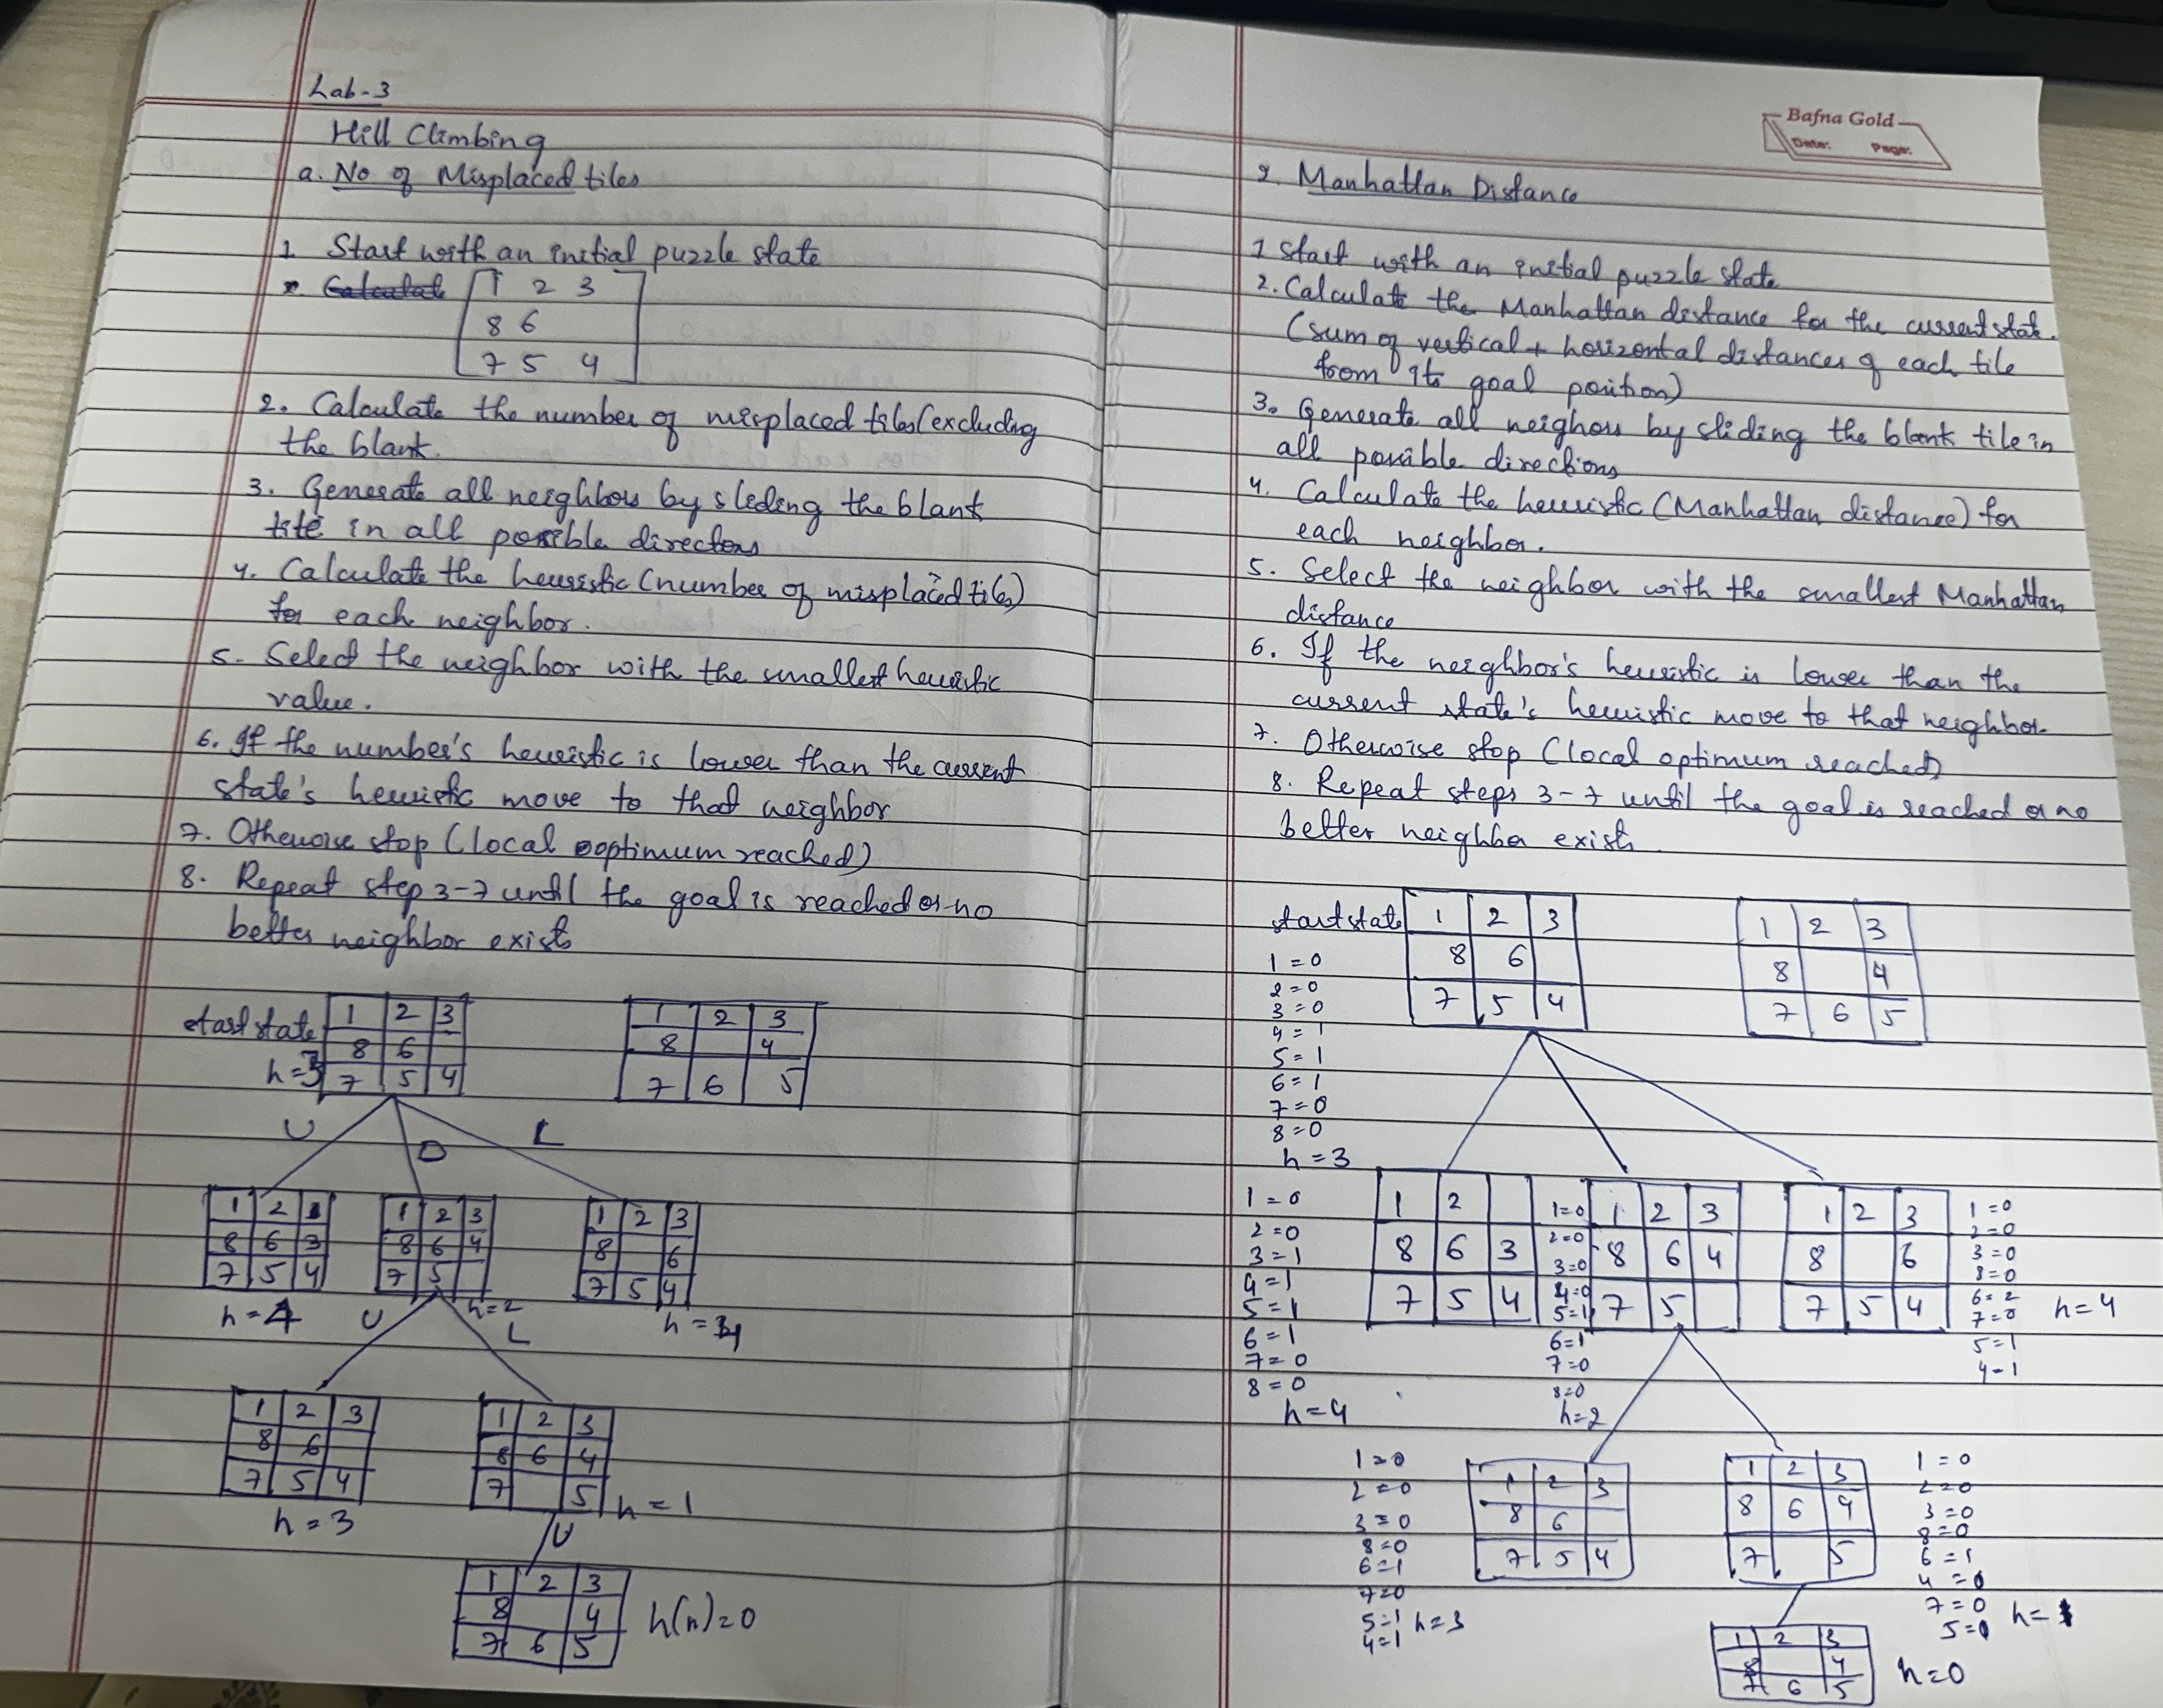 Lab-3
Hill Climbing
a. No of Misplaced tiles
1. Start with an initial puzzle state
1 2 3
8 6
7 5 4
2. Calculate the number of misplaced tiles (excluding
the blank.
3. Generate all neighbors by sliding the blank
tile in all possible directons
4. Calculate the heuristic (number of misplaced tiles)
for each neighbor.
5. Select the neighbor with the smallest heuristic
value.
6. If the number's heuristic is lower than the current
state's heuristic move to that neighbor
7. Otherwise stop (local optimum reached)
8. Repeat step 3-7 until the goal is reached or no
better neighbor exists
start state
h=3
1 2 3
8 6
7 5 4
1 2 3
8 4
7 6 5
U
D
L
1 2
8 6 3
7 5 4
h=4
1 2 3
8 6 4
7 5
h=2
1 2 3
8 6
7 5 4
h=
U
L
1 2 3
8 6
7 5 4
h=3
1 2 3
8 6 4
7 5
h=1
U
1 2 3
8 4
7 6 5
h(n)=0
Bafna Gold
Date: Page:
2. Manhattan Distance
1 Start with an initial puzzle state
2. Calculate the Manhattan distance for the current state.
(sum of vertical + horizontal distances of each tile
from its goal position)
3. Generate all neighors by sliding the blank tile in
all possible directions
4. Calculate the heuristic (Manhattan distance) for
each neighbor.
5. Select the neighbor with the smallest Manhattan
distance
6. If the neighbor's heuristic is lower than the
current state's heuristic move to that neighbor
7. Otherwise stop (local optimum reached)
8. Repeat steps 3-7 until the goal is reached or no
better neighbor exists.
start state
1 2 3
8 6
7 5 4
1 2 3
8 4
7 6 5
1=0
2=0
3=0
4=1
5=1
6=1
7=0
8=0
h=3
1=0
2=0
3=1
4=1
5=1
6=1
7=0
8=0
h=4
1 2
8 6 3
7 5 4
1=0
2=0
3=0
4=0
5=1
6=1
7=0
8=0
h=2
1 2 3
8 6 4
7 5
1 2 3
8 6
7 5 4
1=0
2=0
3=0
8=0
6=2
7=0
5=1
4-1
h=4
1=0
2=0
3=0
8=0
6=1
7=0
5=1
4=1
h=3
1 2 3
8 6
7 5 4
1 2 3
8 6 4
7 5
1=0
2=0
3=0
8=0
6=1
4=0
7=0
5=0
h=1
1 2 3
8 4
7 6 5
h=0